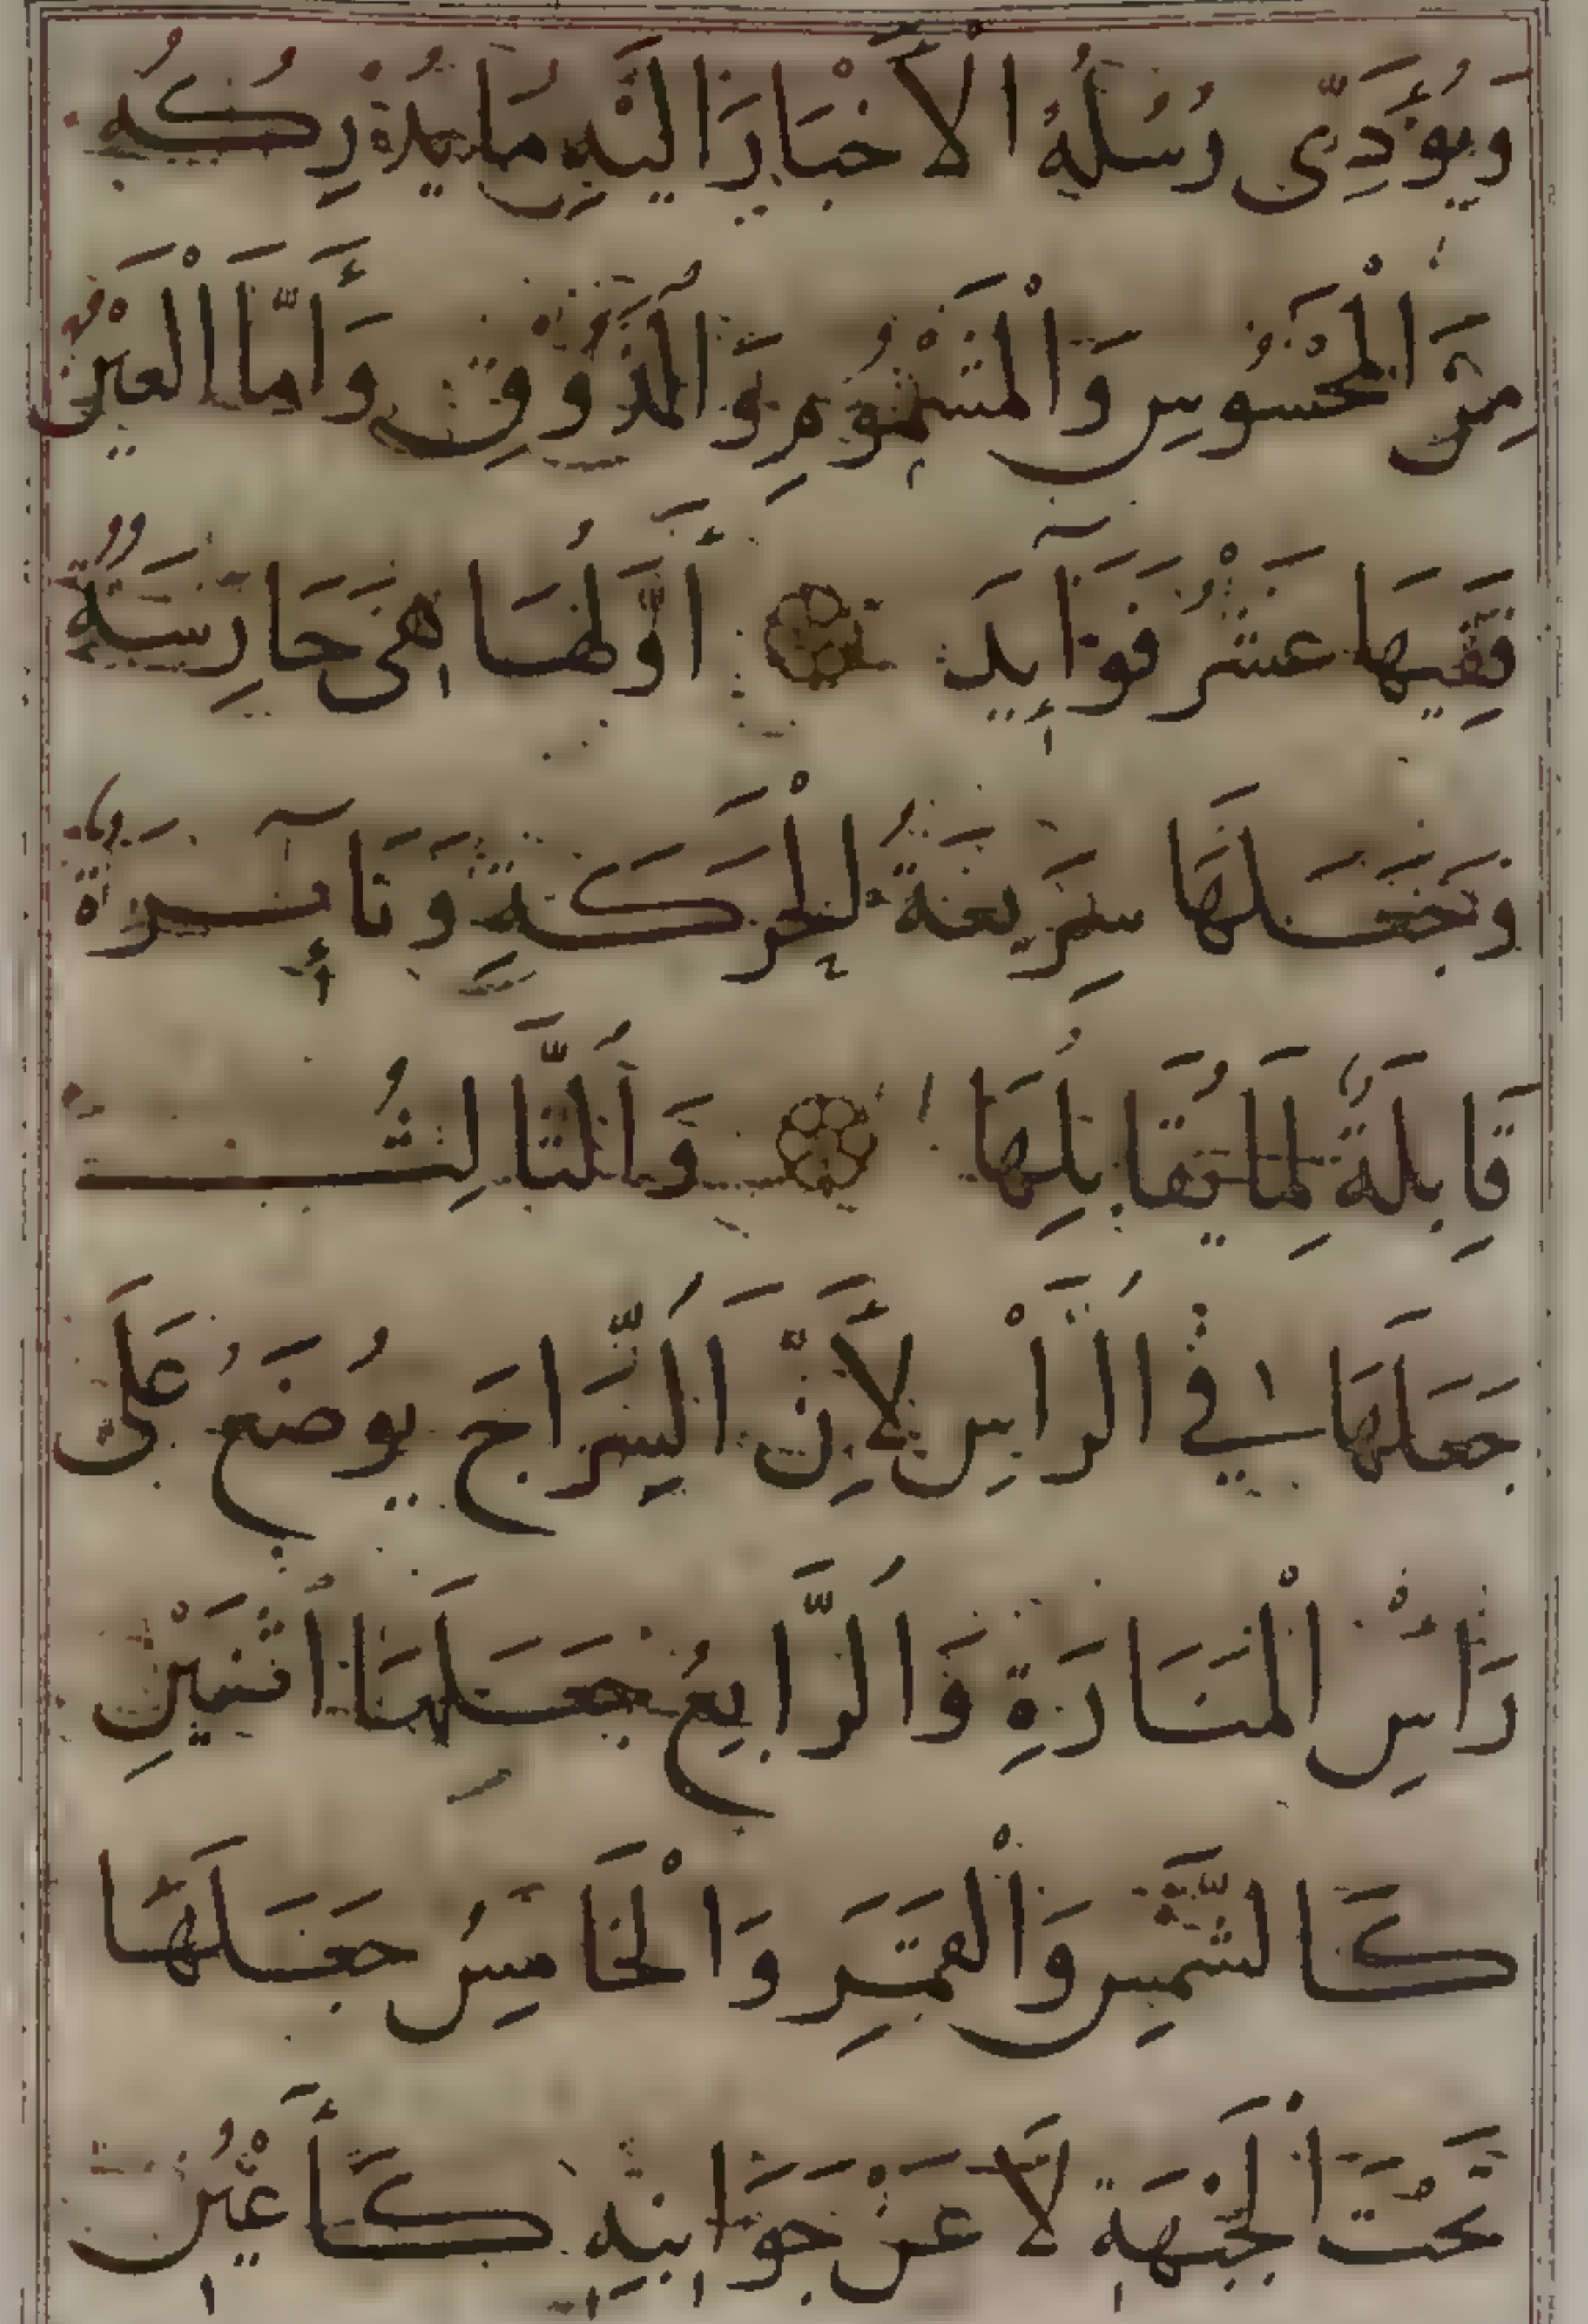 وَيُؤَدِّى رُسُلُهُ الْاَخْبَارَ اِلَيْهِ مَا يُدْرِكُهُ
مِنَ الْمَحْسُوسِ وَالْمَشْمُومِ وَالْمَذُوْقِ وَأَمَّا الْعَيْنُ
فَفِيهَا عَشْرُ فَوَآئِدَ أَوَّلُهَا هِىَ حَارِسَةٌ
وَجَعَلَهَا سَرِيعَةَ الْحَرَكَةِ وَنَآئِرَةً
قَابِلَةً لِمَا يُقَابِلُهَا وَالثَّالِثُ
جَعَلَهَا فِي الرَّأْسِ لِأَنَّ السِّرَاجَ يُوضَعُ عَلَى
رَأْسِ الْمَنَارَةِ وَالرَّابِعُ جَعَلَهَا اثْنَيْنِ
كَالشَّمْسِ وَالْقَمَرِ وَالْخَامِسُ جَعَلَهَا
تَحْتَ الْجَبْهَةِ لَا عَنْ جَوَانِبِهِ كَأَعْيُنِ